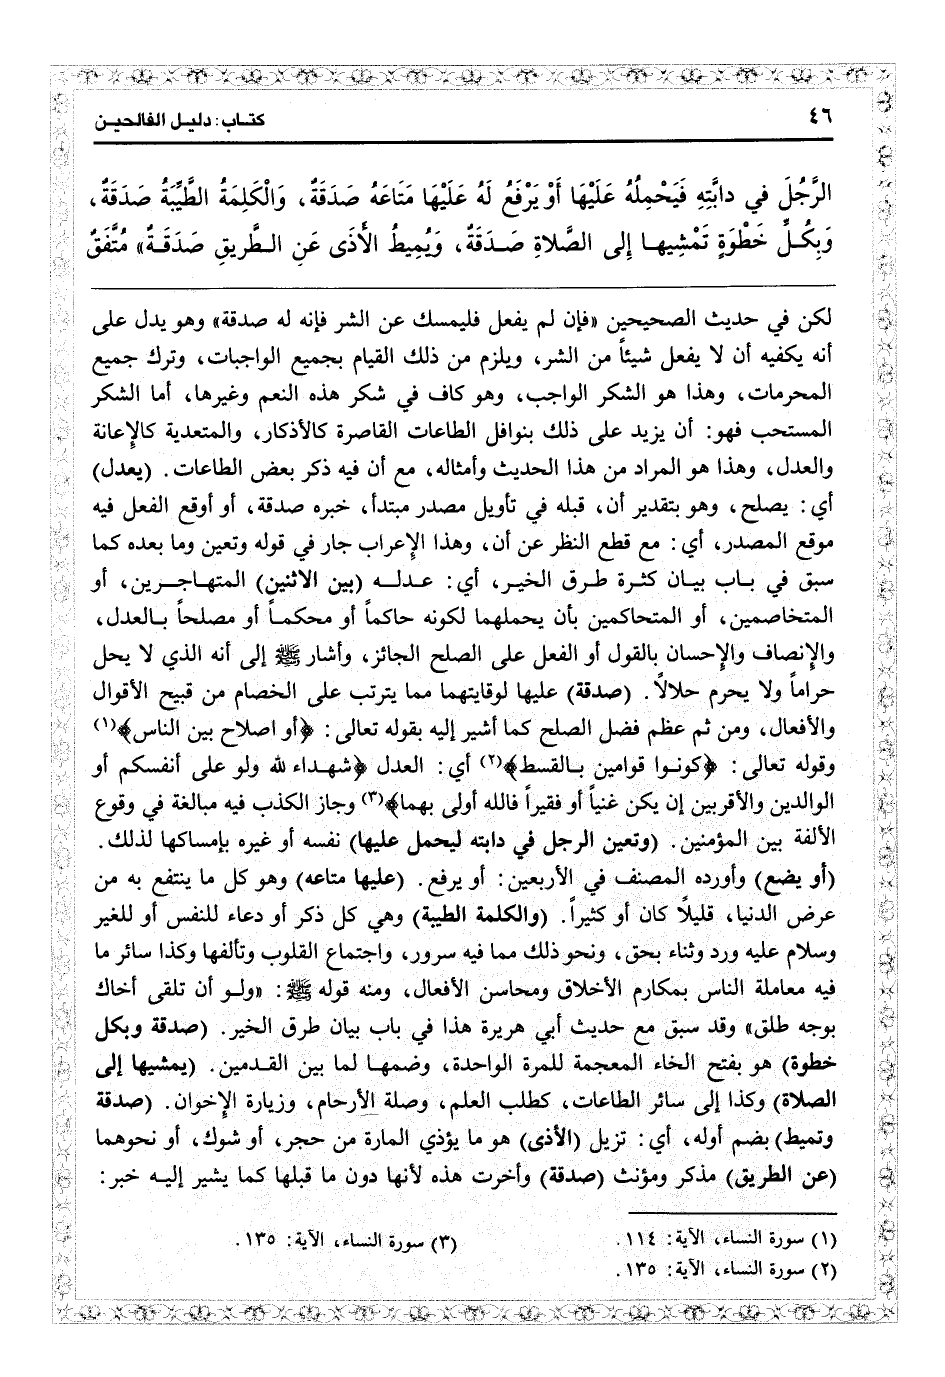 ٤٦
كتاب: دليل الفالحين
الرَّجُلَ في دابَّتِهِ فَيَحْمِلُهُ عَلَيْهَا أَوْ يَرْفَعُ لَهُ عَلَيْهَا مَتَاعَهُ صَدَقَةٌ، وَالْكَلِمَةُ الطَّيِّبَةُ صَدَقَةٌ،
وَبِكُلِّ خَطْوَةٍ تَمْشِيهَا إِلى الصَّلاةِ صَدَقَةٌ، وَيُمِيطُ الأَذَى عَنِ الطَّرِيقِ صَدَقَةٌ» مُتَّفَقٌ
لكن في حديث الصحيحين «فإن لم يفعل فليمسك عن الشر فإنه له صدقة» وهو يدل على
أنه يكفيه أن لا يفعل شيئاً من الشر، ويلزم من ذلك القيام بجميع الواجبات، وترك جميع
المحرمات، وهذا هو الشكر الواجب، وهو كاف في شكر هذه النعم وغيرها، أما الشكر
المستحب فهو: أن يزيد على ذلك بنوافل الطاعات القاصرة كالأذكار، والمتعدية كالإعانة
والعدل، وهذا هو المراد من هذا الحديث وأمثاله، مع أن فيه ذكر بعض الطاعات. (يعدل)
أي: يصلح، وهو بتقدير أن، قبله في تأويل مصدر مبتدأ، خبره صدقة، أو أوقع الفعل فيه
موقع المصدر، أي: مع قطع النظر عن أن، وهذا الإعراب جار في قوله وتعين وما بعده كما
سبق في باب بيان كثرة طرق الخير، أي: عدله (بين الاثنين) المتهاجرين، أو
المتخاصمين، أو المتحاكمين بأن يحملهما لكونه حاكماً أو محكماً أو مصلحاً بالعدل،
والإنصاف والإحسان بالقول أو الفعل على الصلح الجائز، وأشار ﷺ إلى أنه الذي لا يحل
حراماً ولا يحرم حلالاً. (صدقة) عليها لوقايتهما مما يترتب على الخصام من قبيح الأقوال
والأفعال، ومن ثم عظم فضل الصلح كما أشير إليه بقوله تعالى: ﴿أو اصلاح بين الناس﴾(١)
وقوله تعالى: ﴿كونوا قوامين بالقسط﴾(٢) أي: العدل ﴿شهداء لله ولو على أنفسكم أو
الوالدين والأقربين إن يكن غنياً أو فقيراً فالله أولى بهما﴾(٣) وجاز الكذب فيه مبالغة في وقوع
الألفة بين المؤمنين. (وتعين الرجل في دابته ليحمل عليها) نفسه أو غيره بإمساكها لذلك.
(أو يضع) وأورده المصنف في الأربعين: أو يرفع. (عليها متاعه) وهو كل ما ينتفع به من
عرض الدنيا، قليلاً كان أو كثيراً. (والكلمة الطيبة) وهي كل ذكر أو دعاء للنفس أو للغير
وسلام عليه ورد وثناء بحق، ونحو ذلك مما فيه سرور، واجتماع القلوب وتألفها وكذا سائر ما
فيه معاملة الناس بمكارم الأخلاق ومحاسن الأفعال، ومنه قوله ﷺ: «ولو أن تلقى أخاك
بوجه طلق» وقد سبق مع حديث أبي هريرة هذا في باب بيان طرق الخير. (صدقة وبكل
خطوة) هو بفتح الخاء المعجمة للمرة الواحدة، وضمها لما بين القدمين. (يمشيها إلى
الصلاة) وكذا إلى سائر الطاعات، كطلب العلم، وصلة الأرحام، وزيارة الإخوان. (صدقة
وتميط) بضم أوله، أي: تزيل (الأذى) هو ما يؤذي المارة من حجر، أو شوك، أو نحوهما
(عن الطريق) مذكر ومؤنث (صدقة) وأخرت هذه لأنها دون ما قبلها كما يشير إليه خبر:
(١) سورة النساء، الآية: ١١٤.
(٣) سورة النساء، الآية: ١٣٥.
(٢) سورة النساء، الآية: ١٣٥.